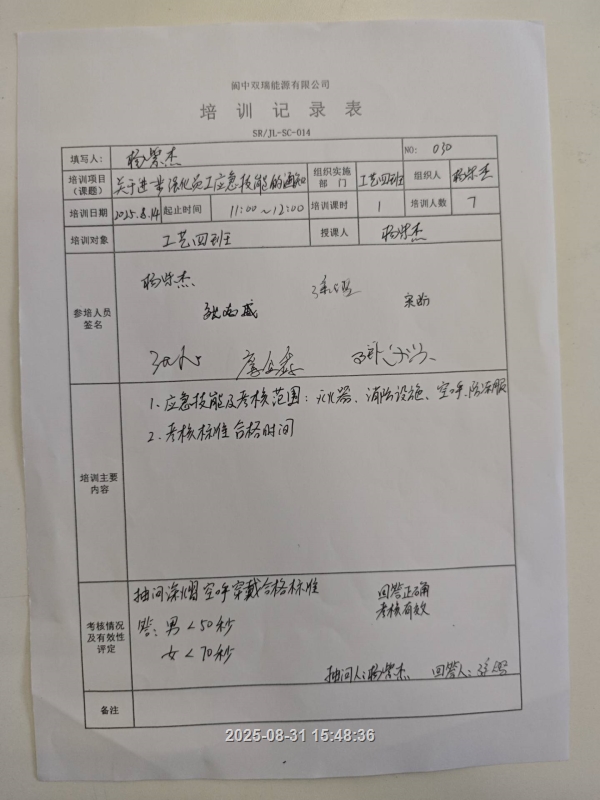 阆中双瑞能源有限公司
培训记录表
SR/JL-SC-014
填写人: 杨崇杰 NO: 030
培训项目（课题） 关于进一步强化员工应急技能的通知 组织实施部门 工艺四班 组织人 杨崇杰
培训日期 2025.8.14 起止时间 11:00～12:00 培训课时 1 培训人数 7
培训对象 工艺四班 授课人 杨崇杰
参培人员签名
杨崇杰
培训主要内容
1. 应急技能及考核范围：灭火器、消防设施、空呼、防冻服
2. 考核标准合格时间
考核情况及有效性评定
抽问 空呼穿戴合格标准 回答正确
答：男<50秒 考核有效
女<70秒
抽问人：杨崇杰 回答人：
备注
2025-08-31 15:48:36